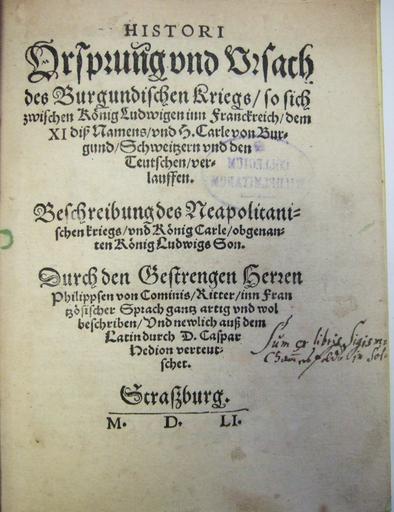 HISTORI
Orsprung vnd Vrsach
des Burgundischen Kriegs/ so sich
zwischen König Ludwigen inn Franckreich/ dem
XI diß Namens/ vnd H. Carle von Bur-
gund/ Schweitzern vnd den
Teutschen/ ver-
lauffen.
Beschreibung des Neapolitani-
schen kriegs/ vnd König Carle/ obgenan-
ten König Ludwigs Son.
Durch den Gestrengen Herren
Philippsen von Cominis/ Ritter/ inn Fran
tzösischer Sprach gantz artig vnd wol
beschriben/ Vnd newlich auß dem
Latin durch D. Caspar
Hedion verteut-
schet.
Sum ex libris Sigism-
in
Straßburg.
M. D. LI.